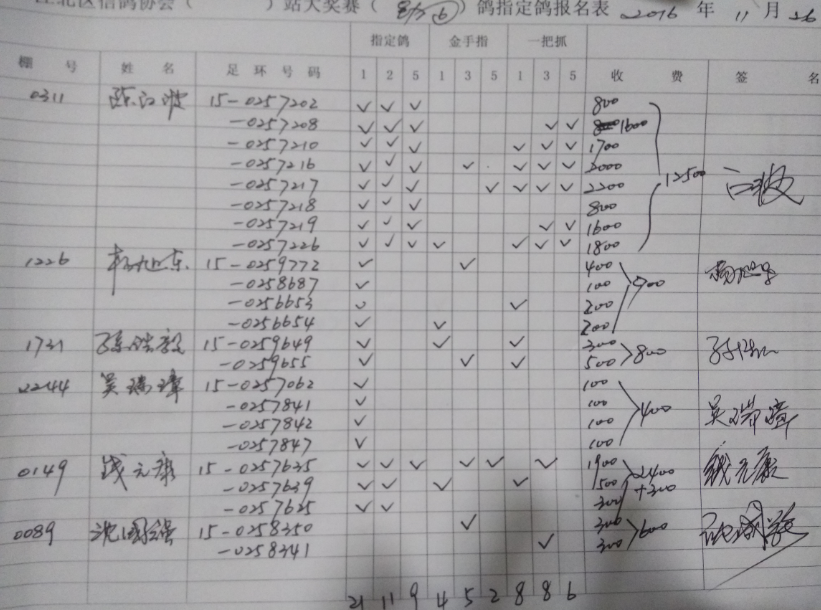 江北区信鸽协会（　　）站大奖赛（　　⑥）鸽指定鸽报名表 2016 年 11 月 26
指定鸽 金手指 一把抓
棚 号 姓 名 足 环 号 码 1 2 5 1 3 5 1 3 5 收 费 签 名
0311 陈江波 15-0257202 ✓ ✓ ✓ 800
-0257208 ✓ ✓ ✓ ✓ ✓ 1600
-0257210 ✓ ✓ ✓ ✓ ✓ ✓ 1700
-0257216 ✓ ✓ ✓ ✓ ✓ ✓ ✓ 2000
-0257217 ✓ ✓ ✓ ✓ ✓ ✓ ✓ 2200 12500 江波
-0257218 ✓ ✓ ✓ 800
-0257219 ✓ ✓ ✓ ✓ ✓ 1600
-0257226 ✓ ✓ ✓ ✓ ✓ ✓ ✓ 1800
1226 杨旭东 15-0259772 ✓ ✓ 400
-0258687 ✓ 100 900
-0256653 ✓ ✓ 200
-0256654 ✓ ✓ 200
1731 15-0259649 ✓ ✓ ✓ 300
-0259655 ✓ ✓ ✓ 500 800
2244 吴瑞璋 15-0257062 ✓ 100
-0257841 ✓ 100 400 吴瑞璋
-0257842 ✓ 100
-0257847 ✓ 100
0149 钱元康 15-0257635 ✓ ✓ ✓ ✓ ✓ ✓ 1900 2400 钱元康
-0257639 ✓ ✓ ✓ ✓ 500 +300
-0257625 ✓ ✓ 300
0089 沈国强 15-0258350 ✓ 300 600
-0258341 ✓ 300
21 11 9 4 5 2 8 8 6